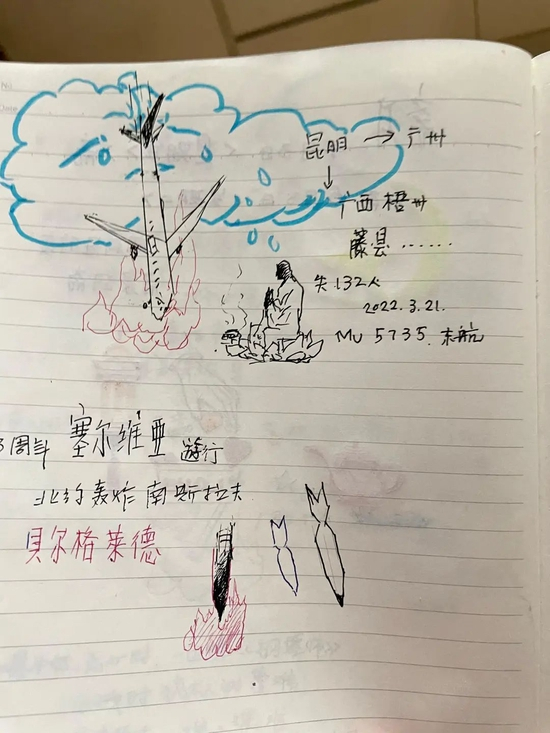 昆明 → 广州
↓
广西 梧州
藤县……
失132人
2022.3.21.
MU 5735. 东航
3周年 塞尔维亚 遊行
北约轰炸南斯拉夫
贝尔格莱德